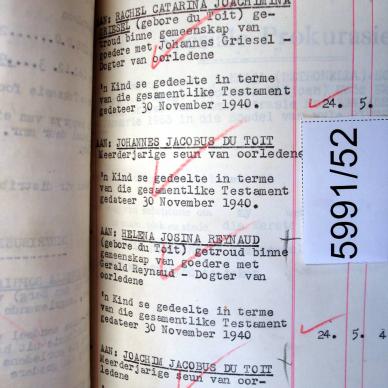 AAN: RACHEL CATARINA JOACHIMINA
GRIESEL (gebore du Toit) ge-
troud binne gemeenskap van
goedere met Johannes Griesel -
Dogter van oorledene
'n Kind se gedeelte in terme
van die gesamentlike Testament
gedateer 30 November 1940.
24. 5.
AAN: JOHANNES JACOBUS DU TOIT
Meerderjarige seun van oorledene
'n Kind se gedeelte in terme
van die gesamentlike Testament
gedateer 30 November 1940.
5991/52
AAN: HELENA JOSINA REYNAUD
(gebore du Toit) getroud binne
gemeenskap van goedere met
Gerald Reynaud - Dogter van
oorledene
'n Kind se gedeelte in terme
van die gesamentlike Testament
gedateer 30 November 1940
24. 5. 4
AAN: JOACHIM JACOBUS DU TOIT
Meerderjarige seun van oor-
ledene